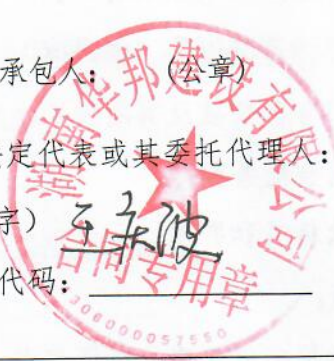 承包人： （公章）
定代表或其委托代理人：
字） 王庆波
代码：
湖南华邦建设有限公司
合同专用章